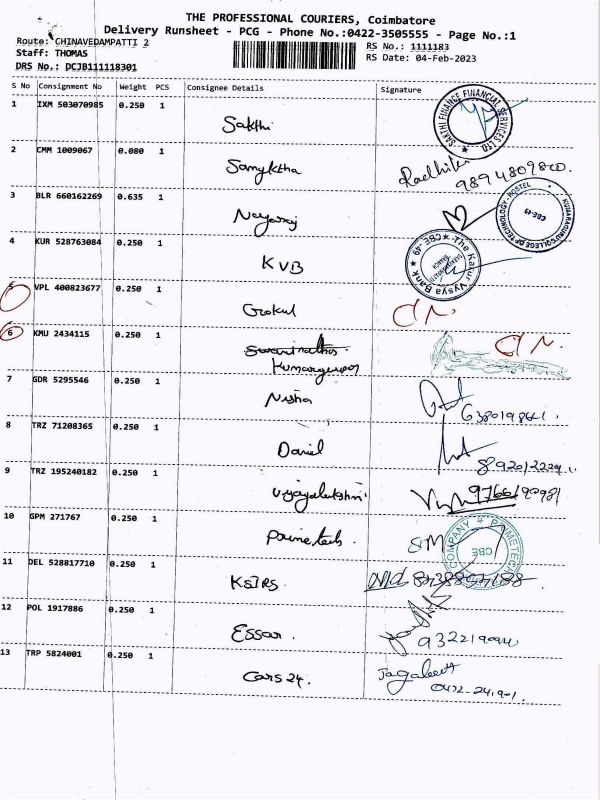 THE PROFESSIONAL COURIERS, Coimbatore
Delivery Runsheet - PCG - Phone No.:0422-3505555 - Page No.:1
Route: CHINAVEDAMPATTI 2
RS No.: 1111183
Staff: THOMAS
RS Date: 04-Feb-2023
DRS No.: DCJB111118301
S No Consignment No Weight PCS Consignee Details Signature
1 IXM 503070985 0.250 1 Sakthi
SAKTHI FINANCE FINANCIAL SERVICES LTD.
2 CMM 1009067 0.080 1 Samyktha Radhika
3 BLR 660162269 0.635 1 Nagaraj
KUMARAGURU COLLEGE OF TECHNOLOGY - HOSTEL CBE-49
4 KUR 528763084 0.250 1 KVB
The Karur Vysya Bank CBE-49
5 VPL 400823677 0.250 1 Gokul
6 KMU 2434115 0.250 1
7 GDR 5295546 0.250 1 Nisha
8 TRZ 71208365 0.250 1 Daniel
9 TRZ 195240182 0.250 1 Vijayalakshmi
10 GPM 271767 0.250 1
COMPANY PRIMETECH CBE
11 DEL 528817710 0.250 1
12 POL 1917886 0.250 1 Essar
13 TRP 5824001 0.250 1 Cars 24.